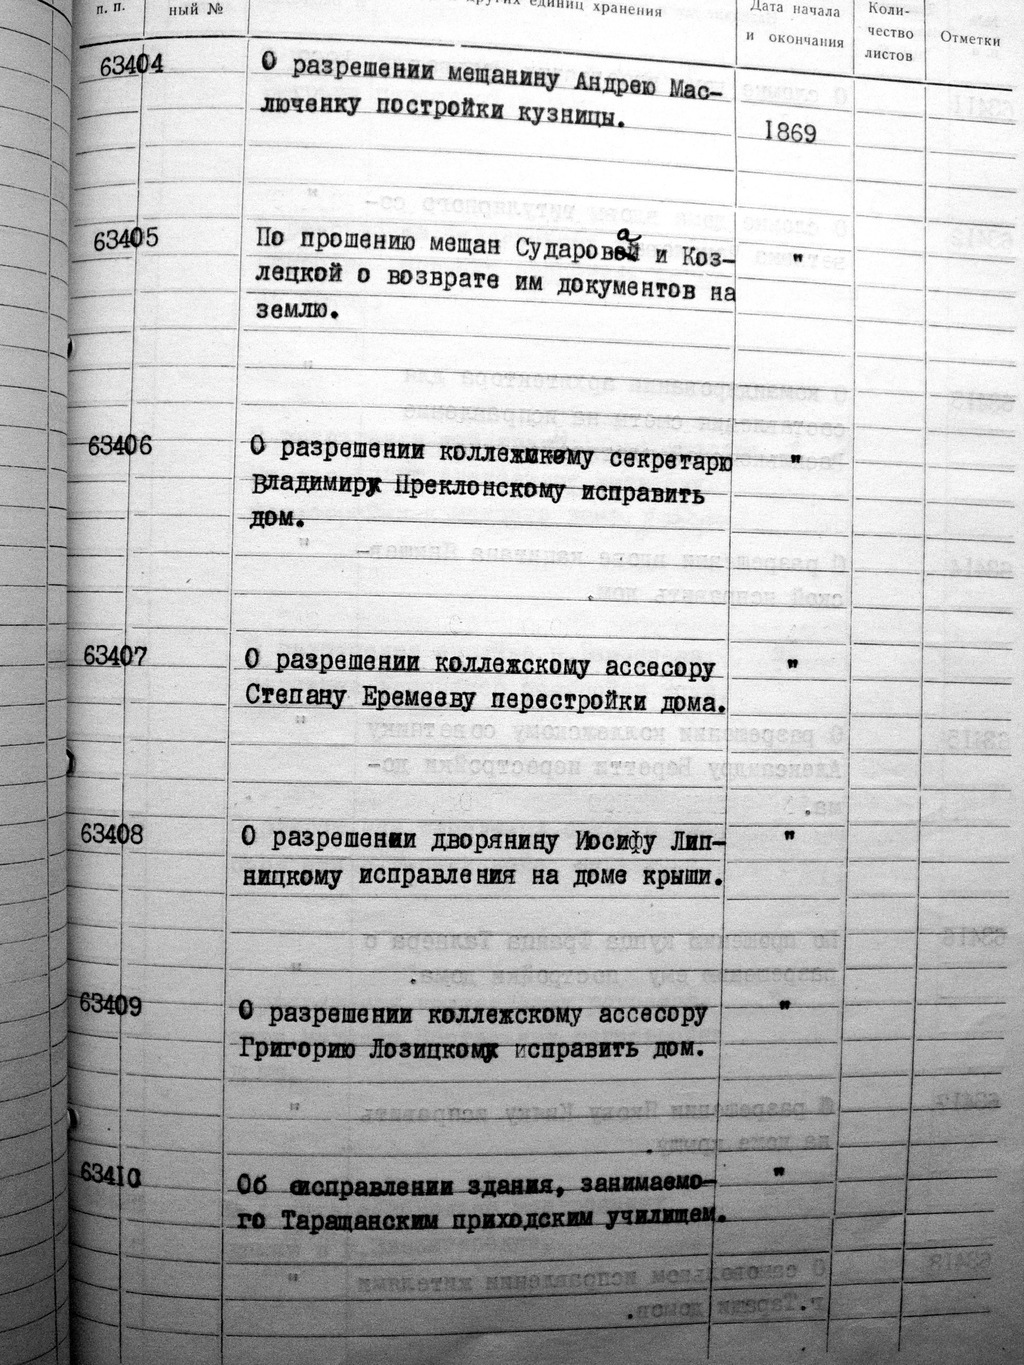 п. п.
ный №
других единиц хранения
Дата начала
и окончания
Коли-
чество
листов
Отметки
63404
О разрешении мещанину Андрею Мас-
люченку постройки кузницы.
1869
63405
По прошению мещан Сударовой и Коз-
лецкой о возврате им документов на
землю.
"
63406
О разрешении коллежскому секретарю
Владимиру Преклонскому исправить
дом.
"
63407
О разрешении коллежскому ассесору
Степану Еремееву перестройки дома.
"
63408
О разрешении дворянину Иосифу Лип-
ницкому исправления на доме крыши.
"
63409
О разрешении коллежскому ассесору
Григорию Лозицкому исправить дом.
"
63410
Об исправлении здания, занимаемо-
го Таращанским приходским училищем.
"